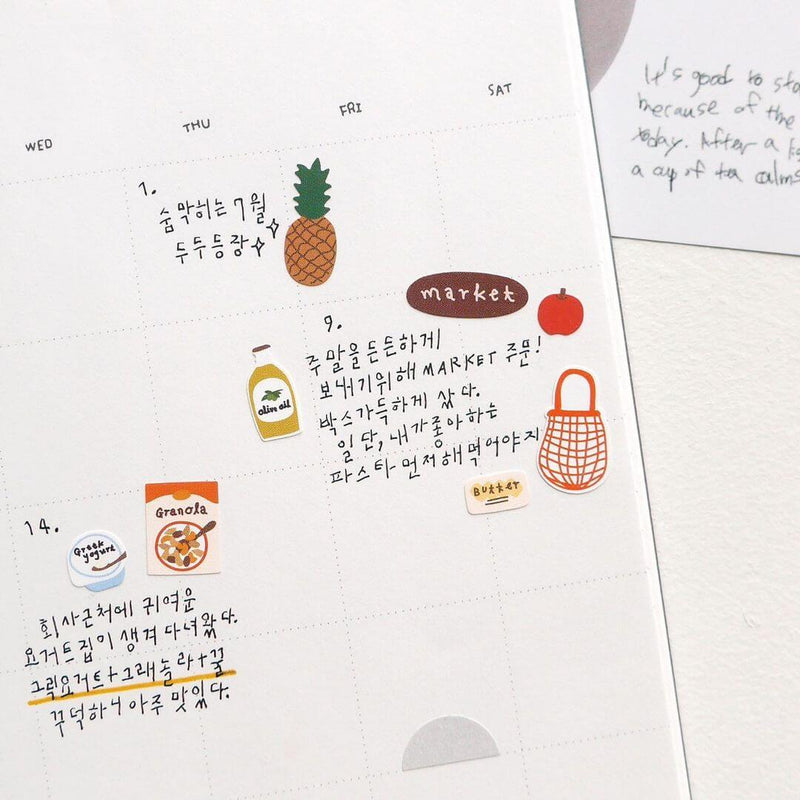 WED
THU
FRI
SAT
1.
숨막히는 7월
두두등장
market
9.
주말을든든하게
보내기위해 MARKET 주문!
박스가득하게 샀다.
일단, 내가좋아하는
파스타 먼저해먹어야지
olive oil
Butter
14.
Greek
yogurt
Granola
회사근처에 귀여운
요거트집이 생겨 다녀왔다.
그릭요거트+그래놀라+꿀
꾸덕하니 아주 맛있다.
It's good to
mecause of the
today. After a
a cup of tea calms